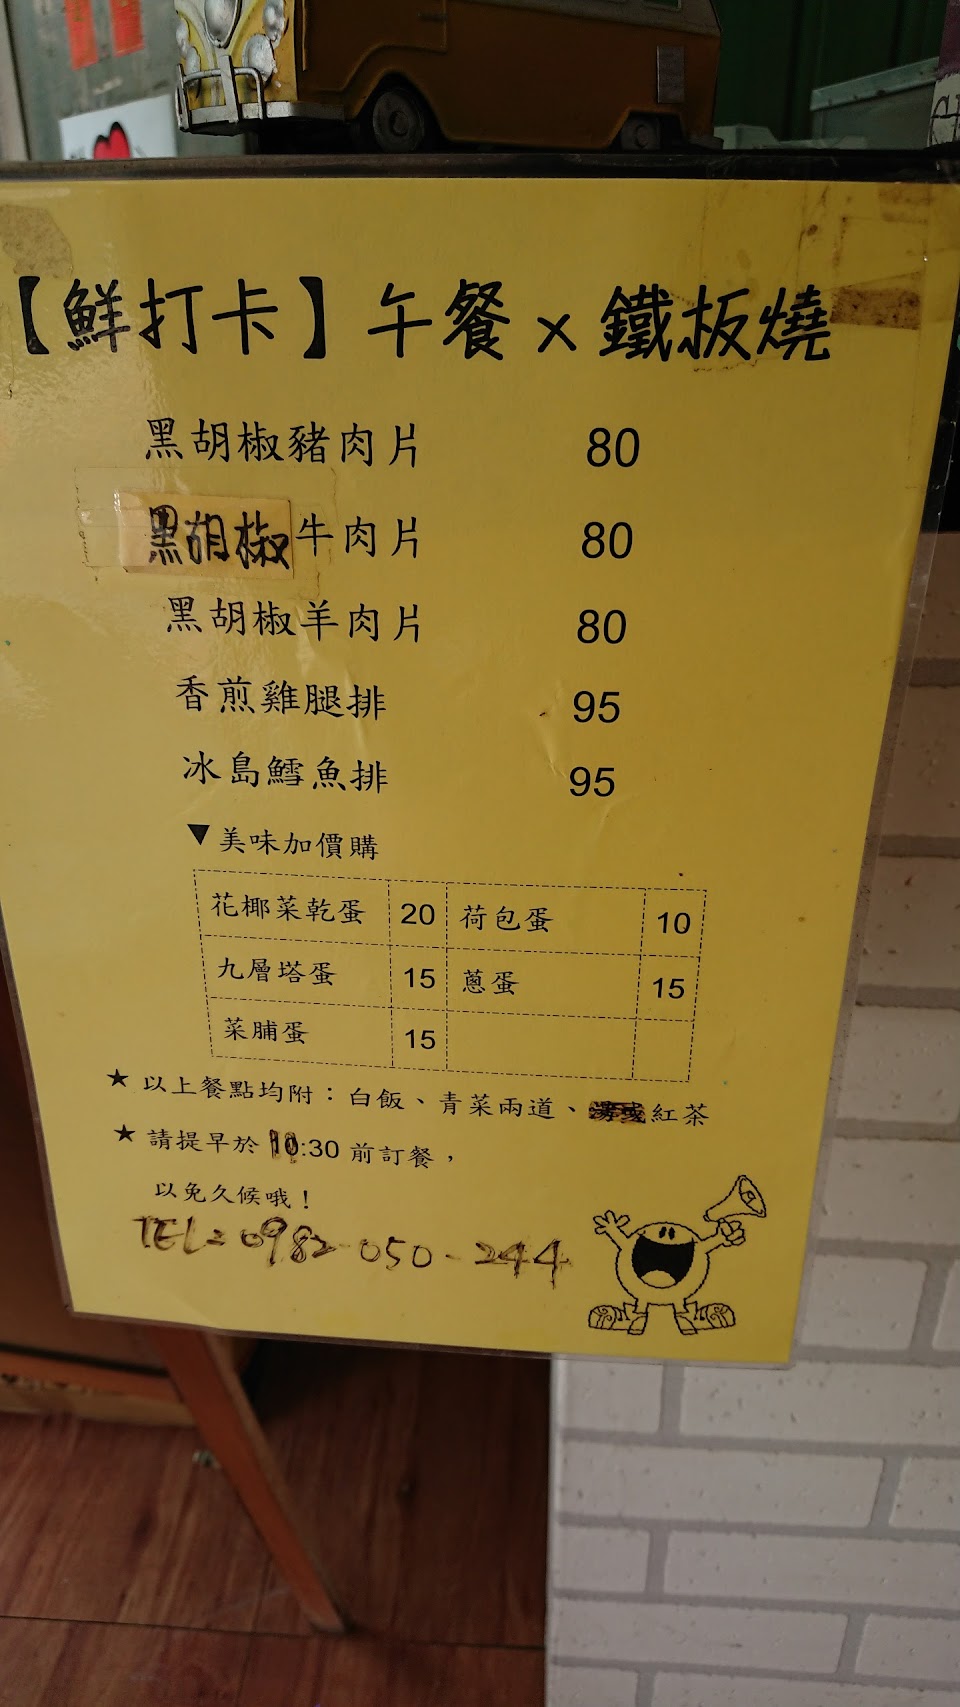 【鮮打卡】午餐 x 鐵板燒
黑胡椒豬肉片 80
黑胡椒牛肉片 80
黑胡椒羊肉片 80
香煎雞腿排 95
冰島鱈魚排 95
▼美味加價購
花椰菜乾蛋 20 荷包蛋 10
九層塔蛋 15 蔥蛋 15
菜脯蛋 15
★ 以上餐點均附：白飯、青菜兩道、紅茶
★ 請提早於 10:30 前訂餐，
以免久候哦！
TEL:0982-050-244